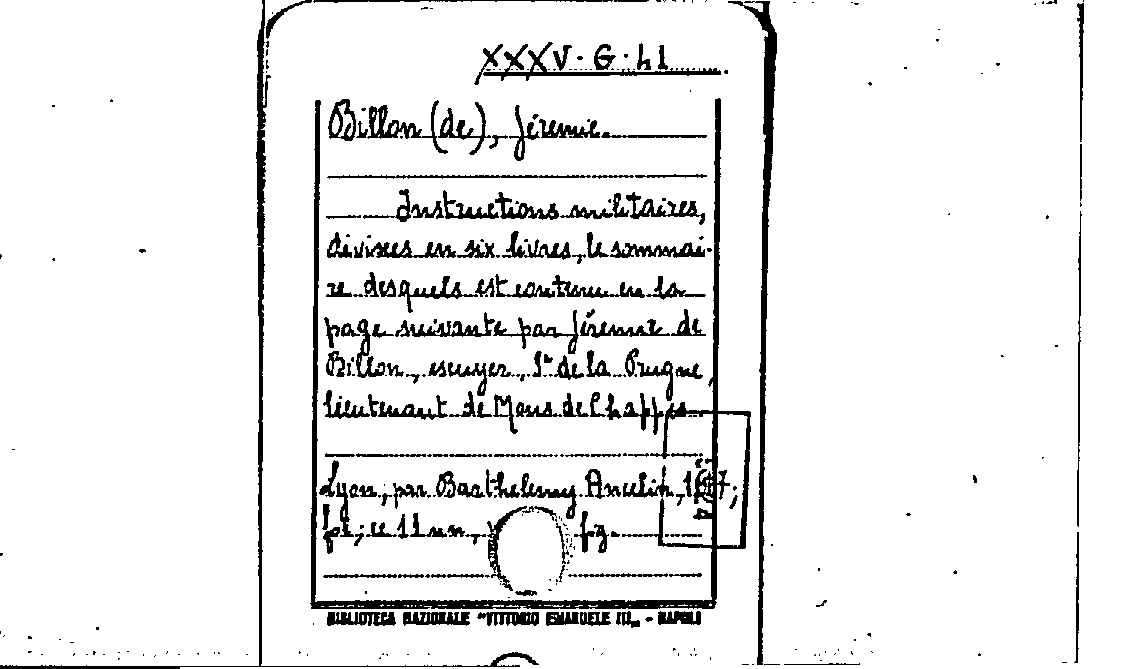 XXXV. G. 41
Billon (de), Jéremie.
Instructions militaires,
divisees en six livres, le sommai-
re desquels est contenu en la
page suivante par Jéremie de
Billon, escuyer, Sr de la Prugne,
lieutenant de Mons de Chappes
Lyon, par Barthelemy Ancelin,
BIBLIOTECA NAZIONALE "VITTORIO EMANUELE III„ - NAPOLI